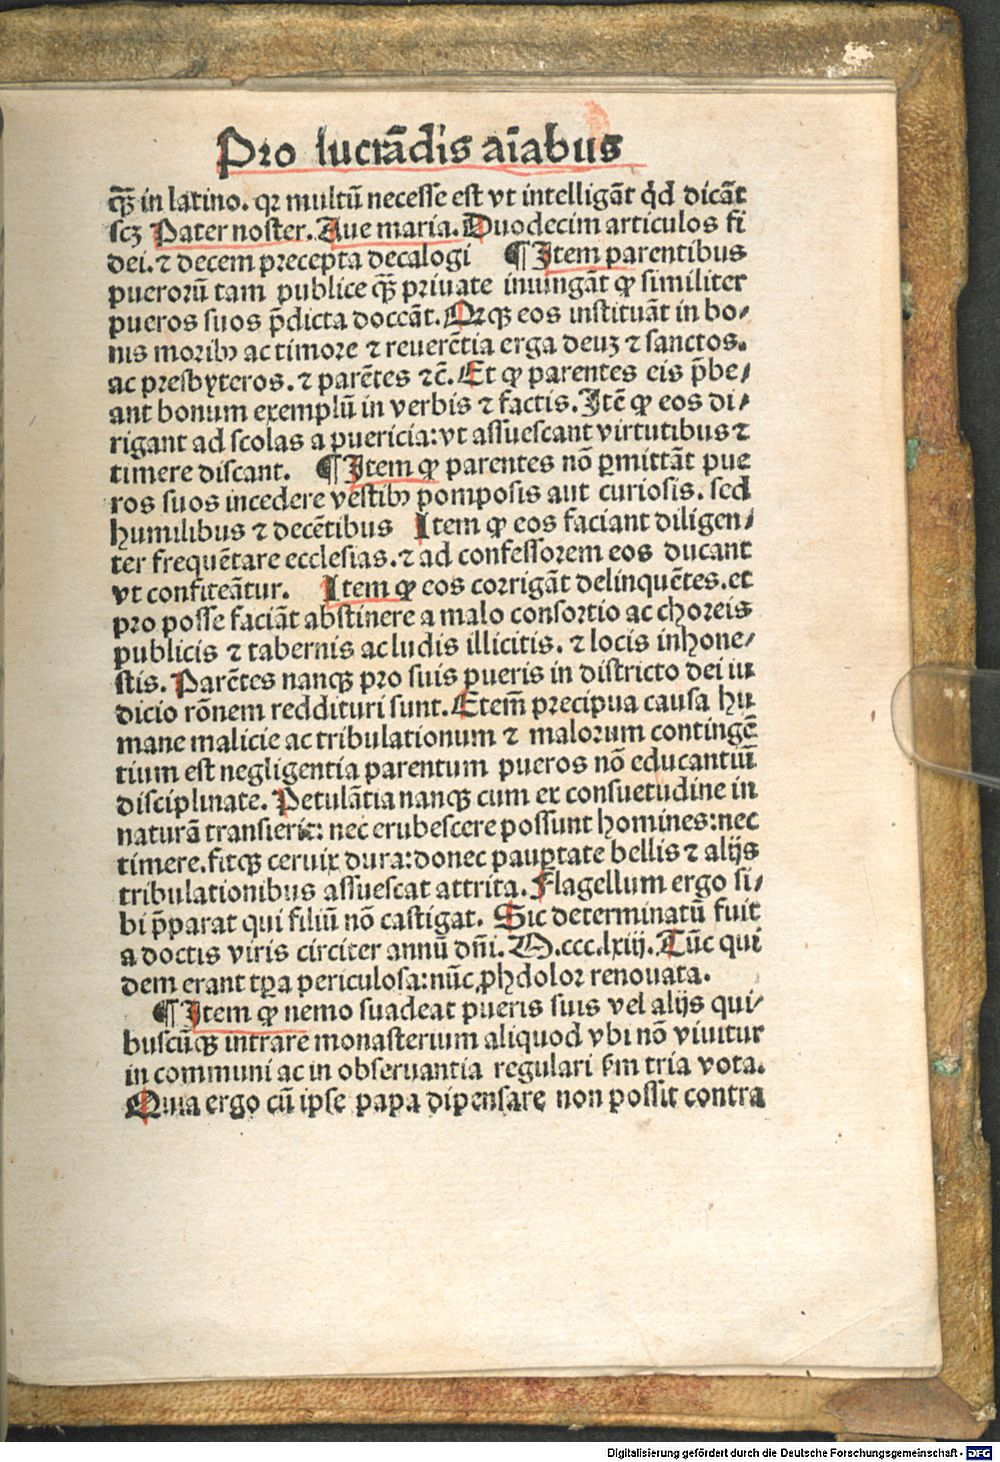 Pro lucrādis aīabus
q̄ꝫ in latino. qꝛ multū necesse est vt intelligāt qd dicāt
scꝫ Pater noster. Aue maria. Duodecim articulos fi
dei. ⁊ decem precepta decalogi ¶ Item parentibus
puerorū tam publice q̄ꝫ priuate iniungāt ꝙ similiter
pueros suos p̄dicta doceāt. Atqꝫ eos instituāt in bo/
nis moribꝰ ac timore ⁊ reuerētia erga deuꝫ ⁊ sanctos.
ac presbyteros. ⁊ parētes ⁊c̄. Et ꝙ parentes eis p̄be/
ant bonum exemplū in verbis ⁊ factis. Itē ꝙ eos di/
rigant ad scolas a puericia: vt assuescant virtutibus ⁊
timere discant. ¶ Item ꝙ parentes nō ꝑmittāt pue
ros suos incedere vestibꝰ pomposis aut curiosis. sed
humilibus ⁊ decētibus Item ꝙ eos faciant diligen/
ter frequētare ecclesias. ⁊ ad confessorem eos ducant
vt confiteātur. Item ꝙ eos corrigāt delinquētes. et
pro posse faciāt abstinere a malo consortio ac choreis
publicis ⁊ tabernis ac ludis illicitis. ⁊ locis inhone/
stis. Parētes nanqꝫ pro suis pueris in districto dei iu
dicio rōnem reddituri sunt. Etem̄ precipua causa hu
mane malicie ac tribulationum ⁊ malorum contingē
tium est negligentia parentum pueros nō educantiū
disciplinate. Petulātia nanqꝫ cum ex consuetudine in
naturā transierit: nec erubescere possunt homines: nec
timere. fitqꝫ ceruix dura: donec pauꝑtate bellis ⁊ alijs
tribulationibus assuescat attrita. Flagellum ergo si/
bi p̄parat qui filiū nō castigat. Sic determinatū fuit
a doctis viris circiter annū dn̄i. M.ccc.lxiij. Tūc qui
dem erant tꝑa periculosa: nūc ꝓh dolor renouata.
¶ Item ꝙ nemo suadeat pueris suis vel alijs qui/
buscūqꝫ intrare monasterium aliquod vbi nō viuitur
in communi ac in obseruantia regulari ẜm tria vota.
Quia ergo cū ipse papa dipensare non possit contra
Digitalisierung gefördert durch die Deutsche Forschungsgemeinschaft - DFG